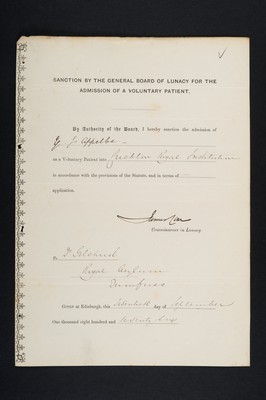 SANCTION BY THE GENERAL BOARD OF LUNACY FOR THE
ADMISSION OF A VOLUNTARY PATIENT.
By Authority of the Board, I hereby sanction the admission of
J. Appelbe
as a Voluntary Patient into Crichton Royal Institution
in accordance with the provisions of the Statute, and in terms of
application.
Commissioner in Lunacy.
To Dr
Royal Asylum
Dumfries
Given at Edinburgh, this day of September
One thousand eight hundred and